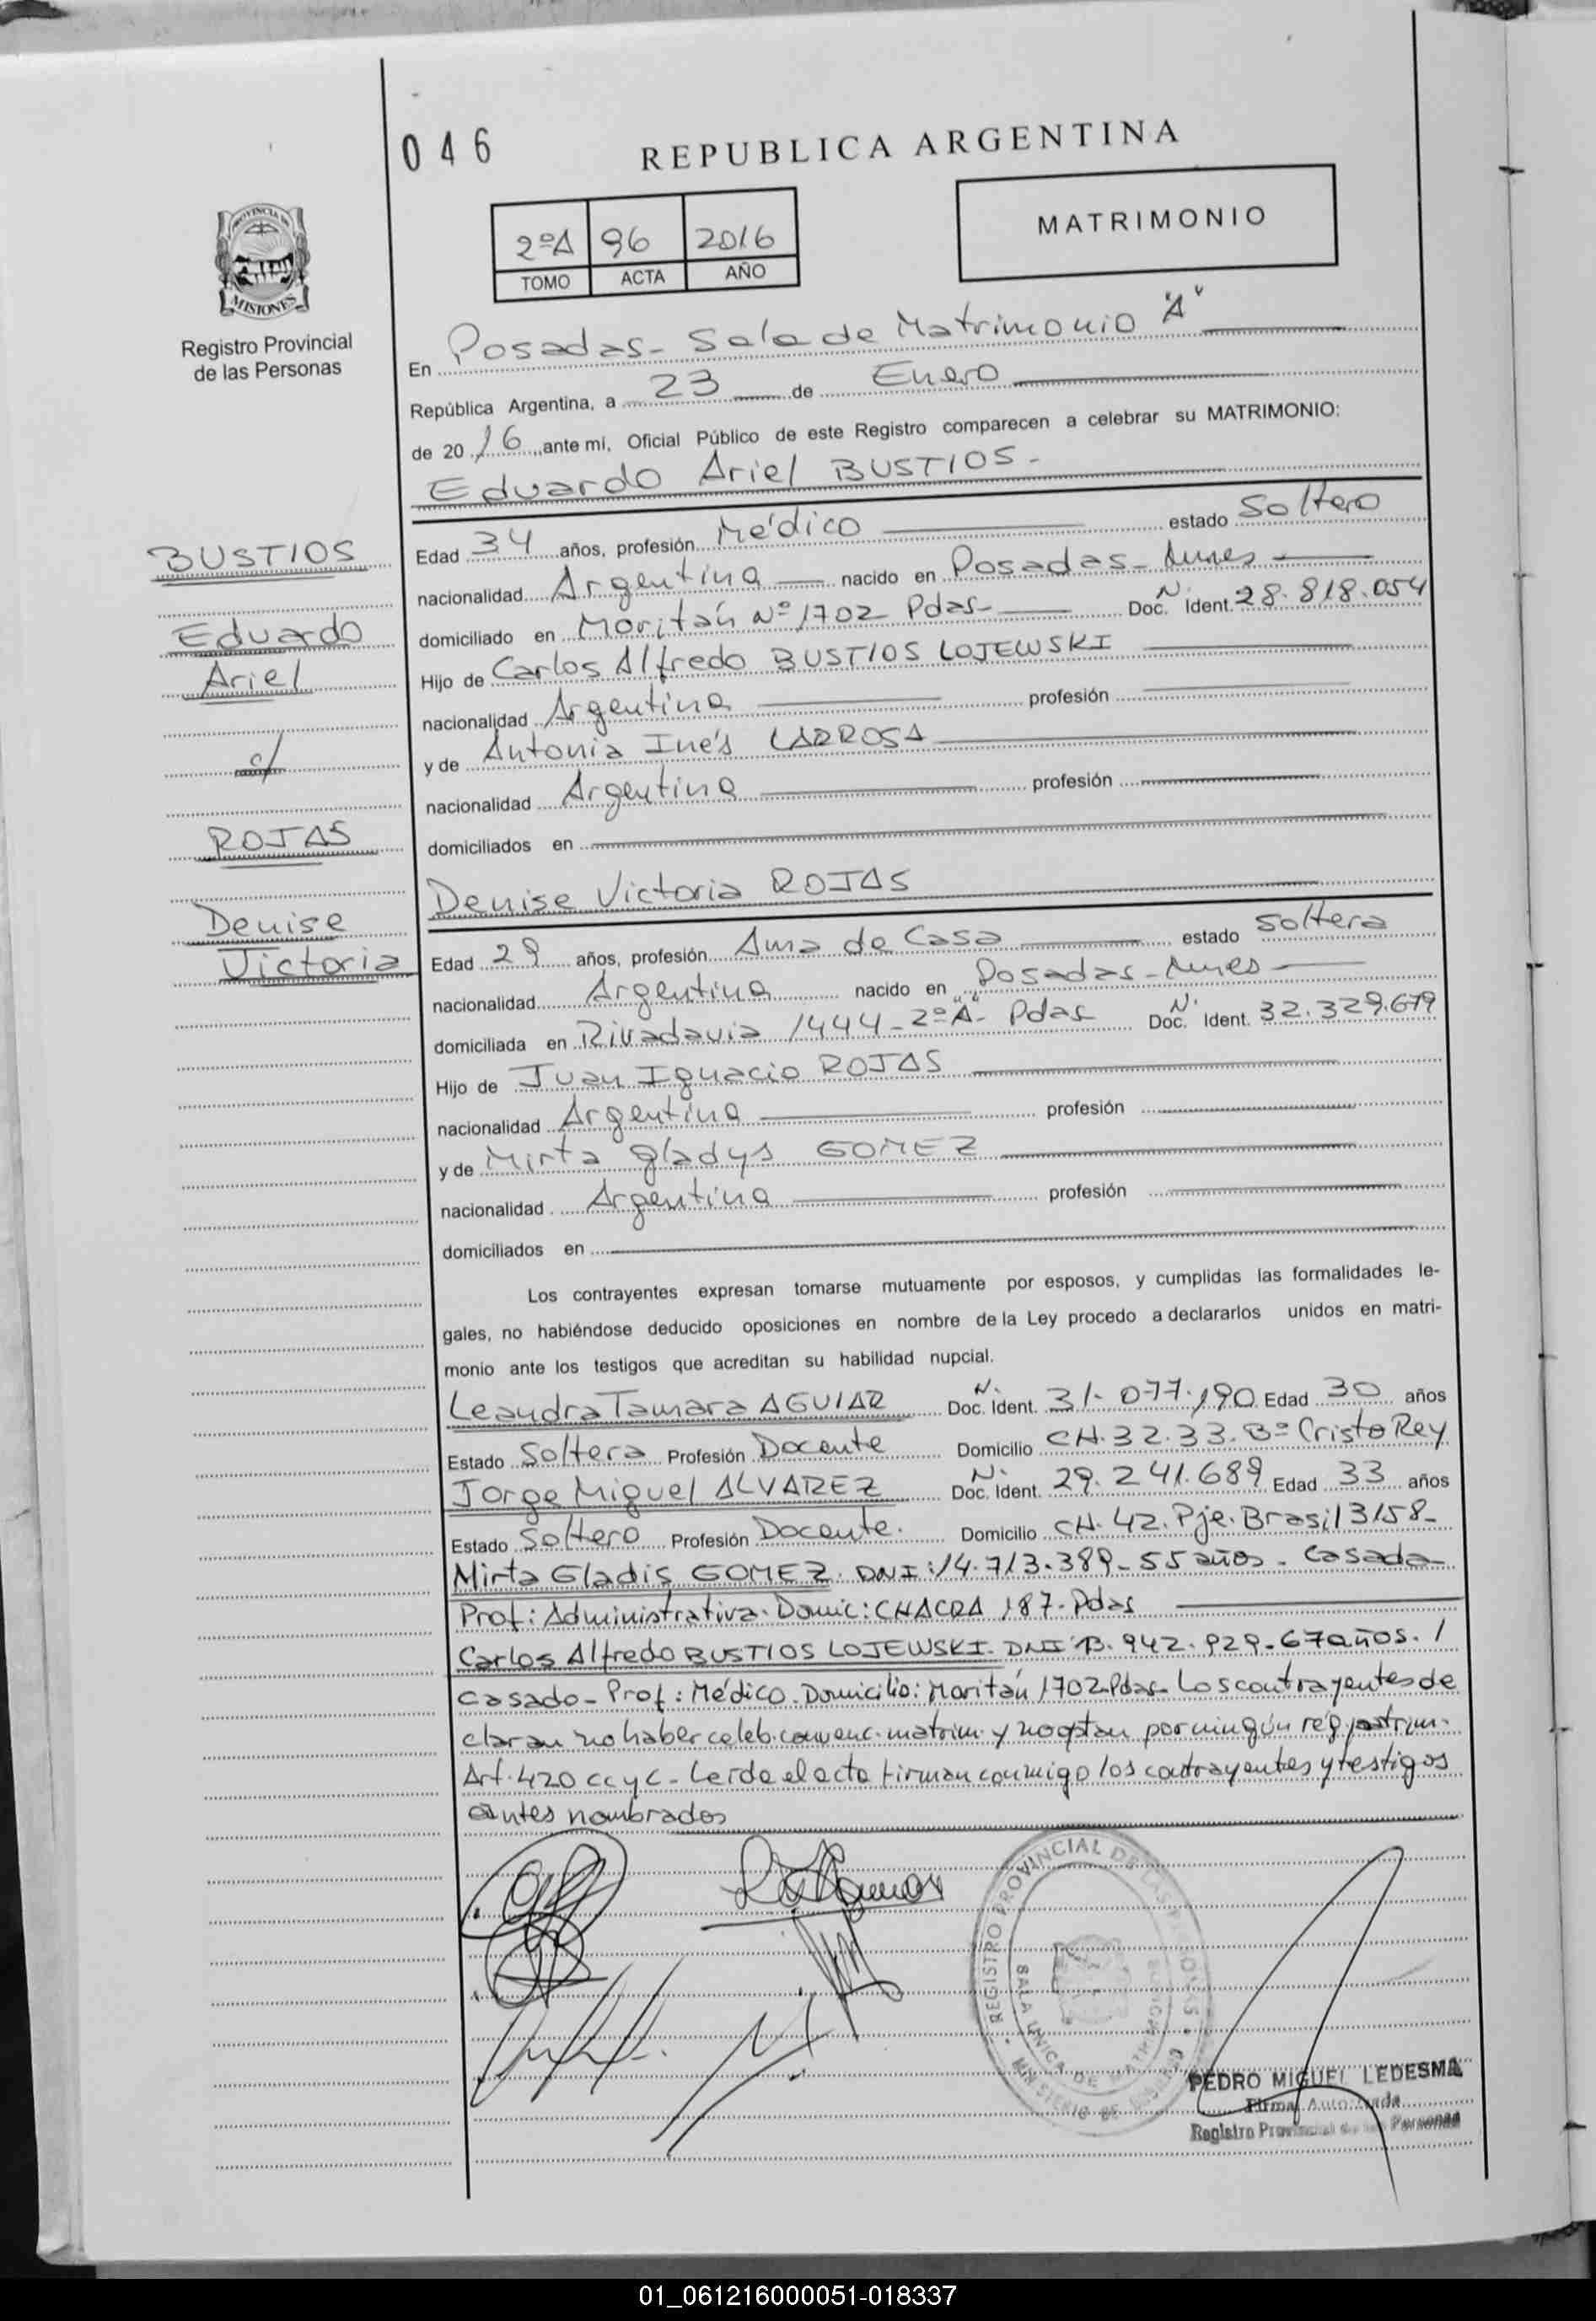 046
REPUBLICA ARGENTINA
2ºA 96 2016
TOMO ACTA AÑO
MATRIMONIO
PROVINCIA DE
MISIONES
Registro Provincial
de las Personas
En Posadas - Sala de Matrimonio "A"
República Argentina, a 23 de Enero
de 2016, ante mí, Oficial Público de este Registro comparecen a celebrar su MATRIMONIO:
Eduardo Ariel BUSTIOS -
BUSTIOS
Eduardo
Ariel
c/
ROJAS
Denise
Victoria
Edad 34 años, profesión Médico estado Soltero
nacionalidad Argentina nacido en Posadas -
domiciliado en Moritán Nº 1702 Pdas- Doc. N. Ident. 28.818.054
Hijo de Carlos Alfredo BUSTIOS LOJEWSKI
nacionalidad Argentina profesión
y de Antonia Inés LARROSA
nacionalidad Argentina profesión
domiciliados en
Denise Victoria ROJAS
Edad 29 años, profesión Ama de Casa estado Soltera
nacionalidad Argentina nacido en Posadas -
domiciliada en Rivadavia 1444 - 2º "A" - Pdas Doc. N. Ident. 32.329.679
Hijo de Juan Ignacio ROJAS
nacionalidad Argentina profesión
y de Mirta Gladys GOMEZ
nacionalidad Argentina profesión
domiciliados en
Los contrayentes expresan tomarse mutuamente por esposos, y cumplidas las formalidades le-
gales, no habiéndose deducido oposiciones en nombre de la Ley procedo a declararlos unidos en matri-
monio ante los testigos que acreditan su habilidad nupcial.
Leandra Tamara AGUIAR Doc. N. Ident. 31.077.190 Edad 30 años
Estado Soltera Profesión Docente Domicilio CH. 32.33. Bº Cristo Rey
Jorge Miguel ALVAREZ Doc. N. Ident. 29.241.689 Edad 33 años
Estado Soltero Profesión Docente. Domicilio CH. 42. Pje. Brasil 3158-
Mirta Gladis GOMEZ. DNI: 14.713.389 - 55 años - Casada
Prof: Administrativa. Domic: CHACRA 187. Pdas
Carlos Alfredo BUSTIOS LOJEWSKI. DNI 13.942.929 - 67 años. /
Casado - Prof: Médico. Domicilio: Moritán 1702 Pdas- Los contrayentes de
claran no haber celeb. convenc. matrim. y no optan por ningún rég. patrim.
Art. 420 CCyC - Leida el acta firman conmigo los contrayentes y testigos
antes nombrados
REGISTRO PROVINCIAL DE LAS PERSONAS
SALA UNICA DE MATRIMONIOS
PEDRO MIGUEL LEDESMA
Firma Autorizada
Registro Provincial de las Personas
01_061216000051-018337